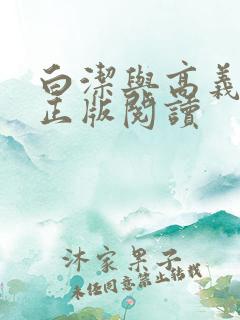 白潔與高義
正版閱讀
沐家果子
未任同意禁止转载